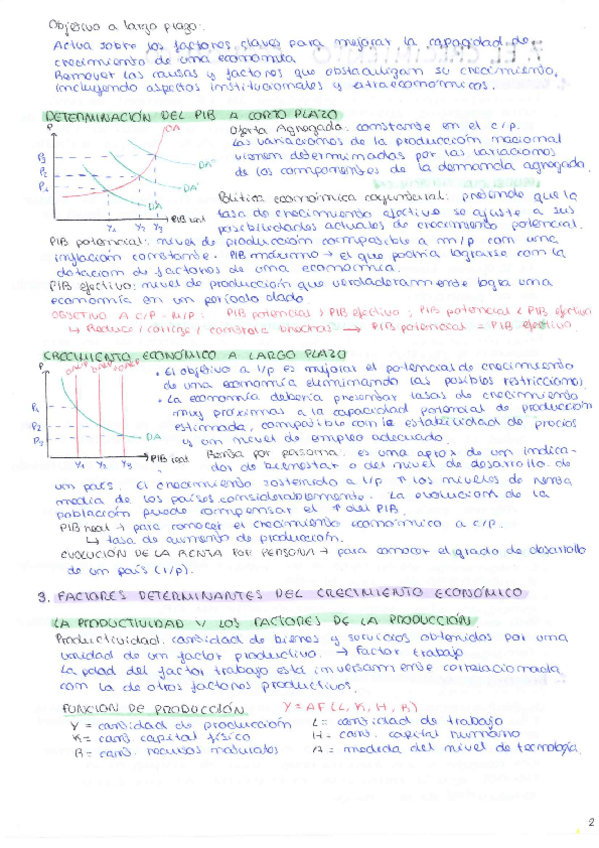 Objetivo a largo plazo:
Actua sobre los factores claves para mejorar la capacidad de
crecimiento de una economía
Remover las causas y factores que obstaculizan su crecimiento,
incluyendo aspectos institucionales y extraeconómicos.
DETERMINACIÓN DEL PIB A CORTO PLAZO
P OA
P3
P2
P1
DA''
DA'
DA
Y1 Y2 Y3 PIB real
Oferta Agregada: constante en el c/p.
Las variaciones de la producción nacional
vienen determinadas por las variaciones
de los componentes de la demanda agregada.
Política económica coyuntural: pretende que la
tasa de crecimiento efectivo se ajuste a sus
posibilidades actuales de crecimiento potencial.
PIB potencial: nivel de producción compatible a m/p con una
inflación constante. PIB máximo → el que podría lograrse con la
dotación de factores de una economía.
PIB efectivo: nivel de producción que verdaderamente logra una
economía en un período dado.
OBJETIVO A C/P - M/P: PIB potencial > PIB efectivo ; PIB potencial < PIB efectivo
↳ Reduce / corrige / controla brechas → PIB potencial = PIB efectivo.
CRECIMIENTO ECONÓMICO A LARGO PLAZO
P
P1
P2
P3
DA
Y1 Y2 Y3 PIB real
• El objetivo a l/p es mejorar el potencial de crecimiento
de una economía eliminando las posibles restricciones.
• La economía debería presentar tasas de crecimiento
muy próximas a la capacidad potencial de producción
estimada, compatible con la estabilidad de precios
y un nivel de empleo adecuado.
Renta por persona: es una aprox de un indica-
dor de bienestar o del nivel de desarrollo de
un país. El crecimiento sostenido a l/p ↑ los niveles de renta
media de los países considerablemente. La evolución de la
población puede compensar el ↑ del PIB.
PIB real → para conocer el crecimiento económico a c/p.
↳ tasa de aumento de producción.
EVOLUCIÓN DE LA RENTA POR PERSONA → para conocer el grado de desarrollo
de un país (l/p).
3. FACTORES DETERMINANTES DEL CRECIMIENTO ECONÓMICO
LA PRODUCTIVIDAD Y LOS FACTORES DE LA PRODUCCIÓN
Productividad: cantidad de bienes y servicios obtenidos por una
unidad de un factor productivo. → Factor trabajo
La pdad del factor trabajo está inversamente correlacionada
con la de otros factores productivos.
FUNCIÓN DE PRODUCCIÓN Y = AF (L, K, H, R)
Y = cantidad de producción L = cantidad de trabajo
K = cant. capital físico H = cant. capital humano
R = cant. recursos naturales A = medida del nivel de tecnología.
2